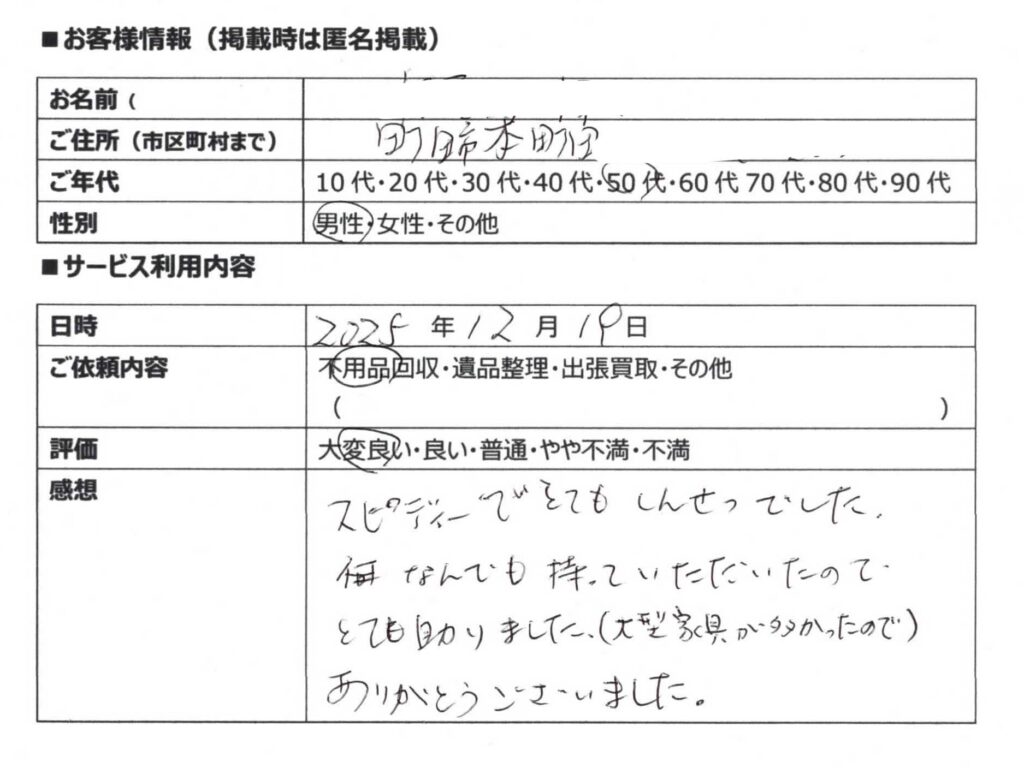 ■お客様情報（掲載時は匿名掲載）
お名前（
ご住所（市区町村まで） 町 本町
ご年代 10代・20代・30代・40代・50代・60代 70代・80代・90代
性別 男性・女性・その他
■サービス利用内容
日時 2025 年 12 月 19 日
ご依頼内容 不用品回収・遺品整理・出張買取・その他
（ ）
評価 大変良い・良い・普通・やや不満・不満
感想 スピーディーでとてもしんせつでした.
なんでも持っていただいたので
とても助かりました、(大型家具が多かったので)
ありがとうございました。